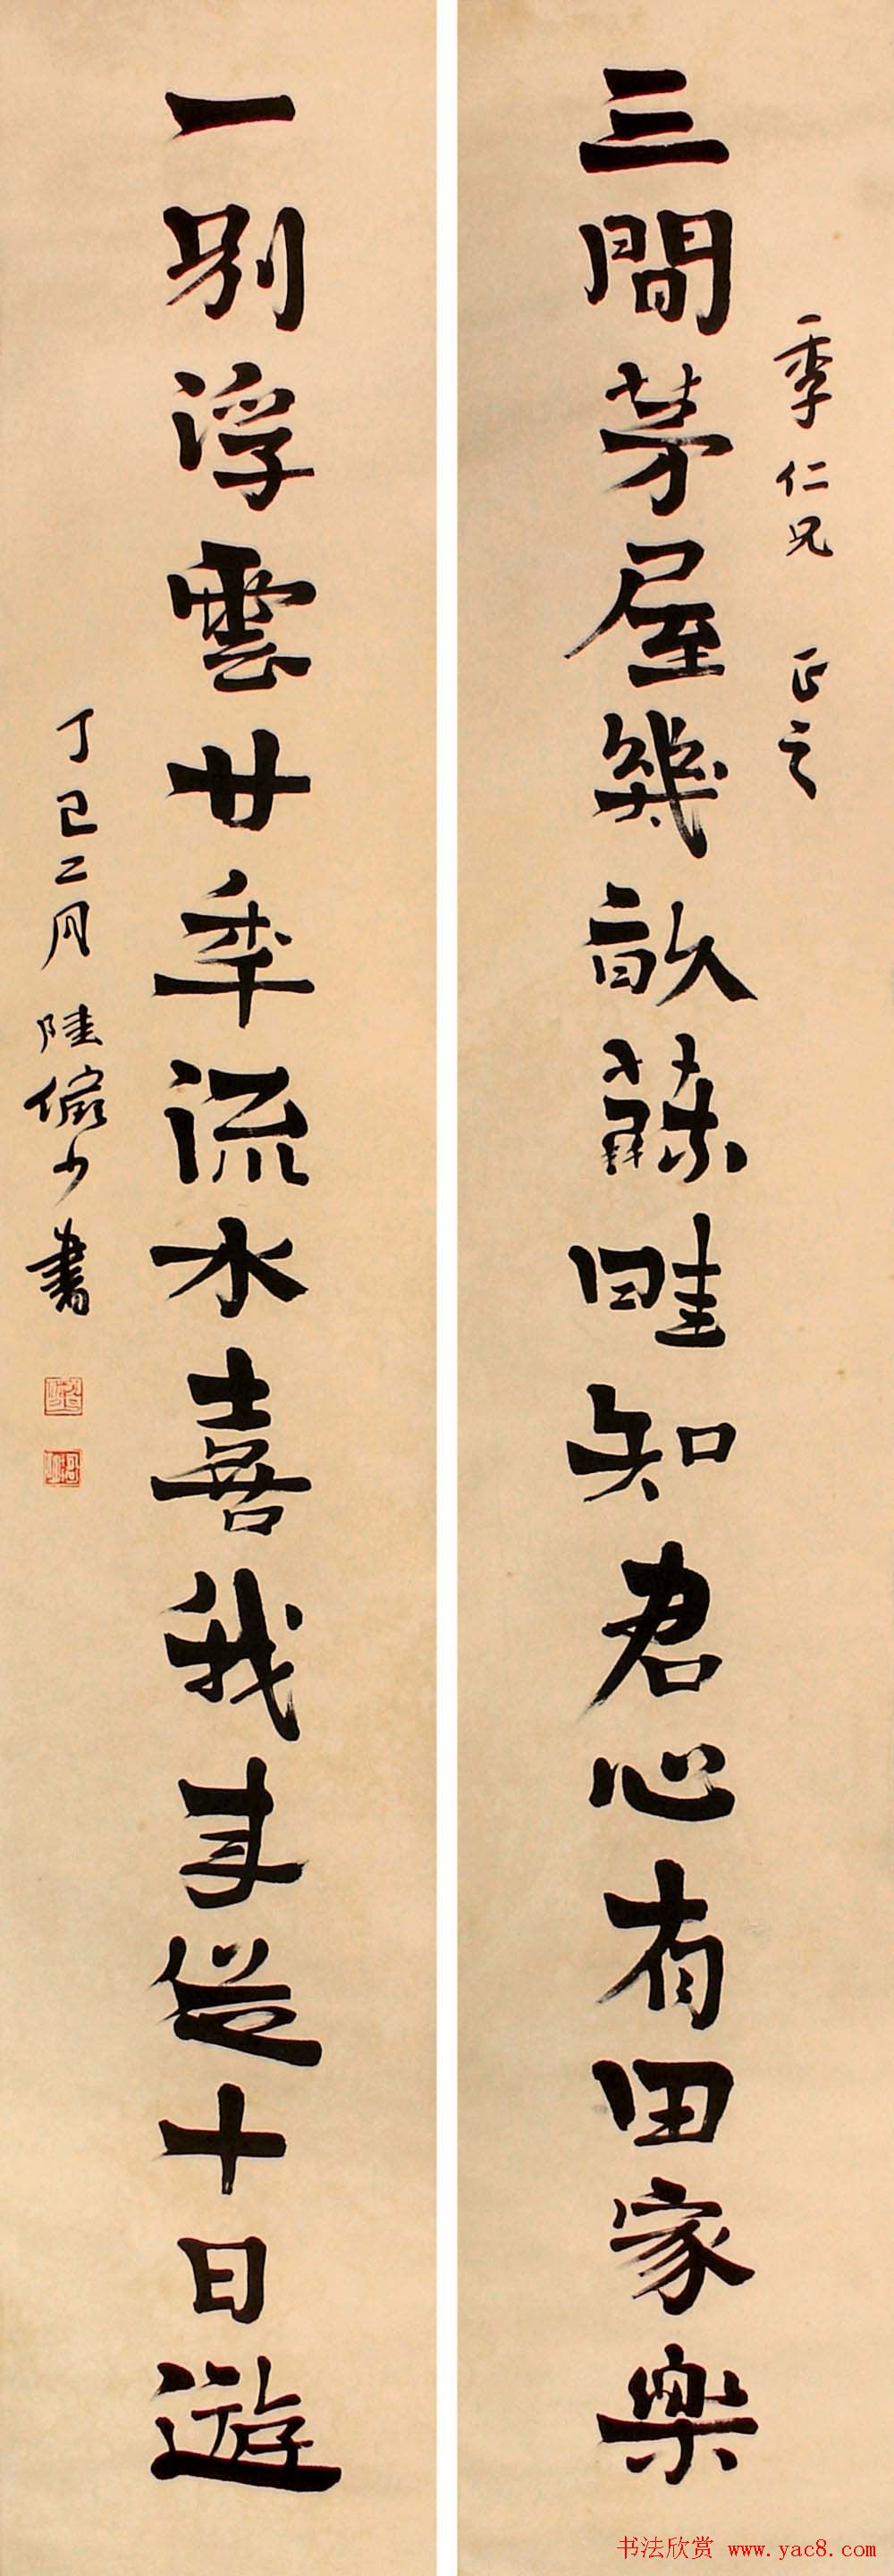 季仁兄 正之
三間茅屋幾畝蔬畦知君心有田家樂
一別浮雲廿年流水喜我身從十日遊
丁巳二月 陸儼少書
书法欣赏 www.yac8.com